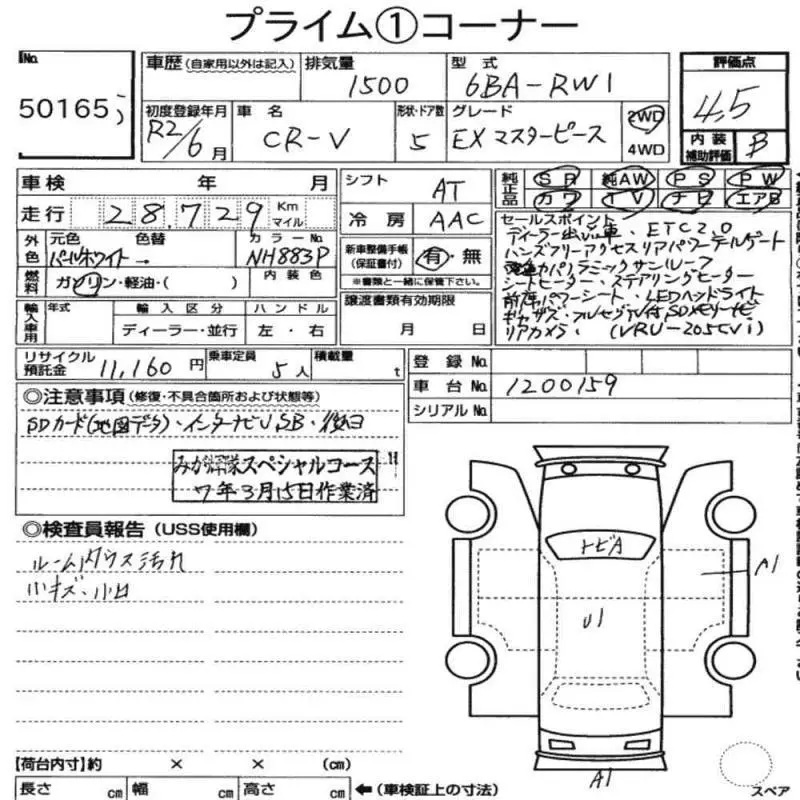 プライム①コーナー
No.
50165
車歴 (自家用以外は記入)
排気量 1500
型式 6BA-RW1
評価点 4.5
初度登録年月 R2/6月
車名 CR-V
形状・ドア数 5
グレード EX マスターピース
2WD
4WD
内装補助評価 B
車検 年 月
走行 28,729 Km マイル
シフト AT
冷房 AAC
純正品 SR 純AW PS PW
カワ TV ナビ エアB
外色 元色 パールホワイト 色替 → カラーNo. NH883P
燃料 ガソリン・軽油・( ) 内装色
新車整備手帳 (保証書付) 有・無
※書類と一緒に保管下さい。
セールスポイント
ディーラー出品車、ETC2.0
ハンズフリーアクセスリアパワーテールゲート
電動パノラミックサンルーフ
シートヒーター・ステアリングヒーター
前席パワーシート、LEDヘッドライト
リアカメラ (VRU-205CVi)
輸入車用 年式 輸入区分 ハンドル
ディーラー・並行 左・右
譲渡書類有効期限
月 日
リサイクル預託金 11,160円 乗車定員 5人 積載量 t
登録No.
車台No. 1200159
シリアルNo.
◎注意事項 (修復・不具合箇所および状態等)
SDカード(地図データ)・インターナビUSB・後日
みがき隊スペシャルコース
7年3月15日作業済
◎検査員報告 (USS使用欄)
ルーム内ウス汚れ
小キズ・小凹
トビA
A1
U1
A1
【荷台内寸】約 × × (cm)
長さ cm 幅 cm 高さ cm ←(車検証上の寸法)
スペア